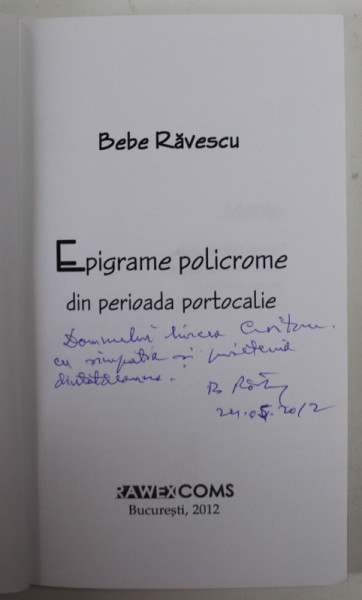 Bebe Răvescu
Epigrame policrome
din perioada portocalie
Domnului Mircea
cu simpatia și prietenia
24.05.2012
RAWEXCOMS
București, 2012